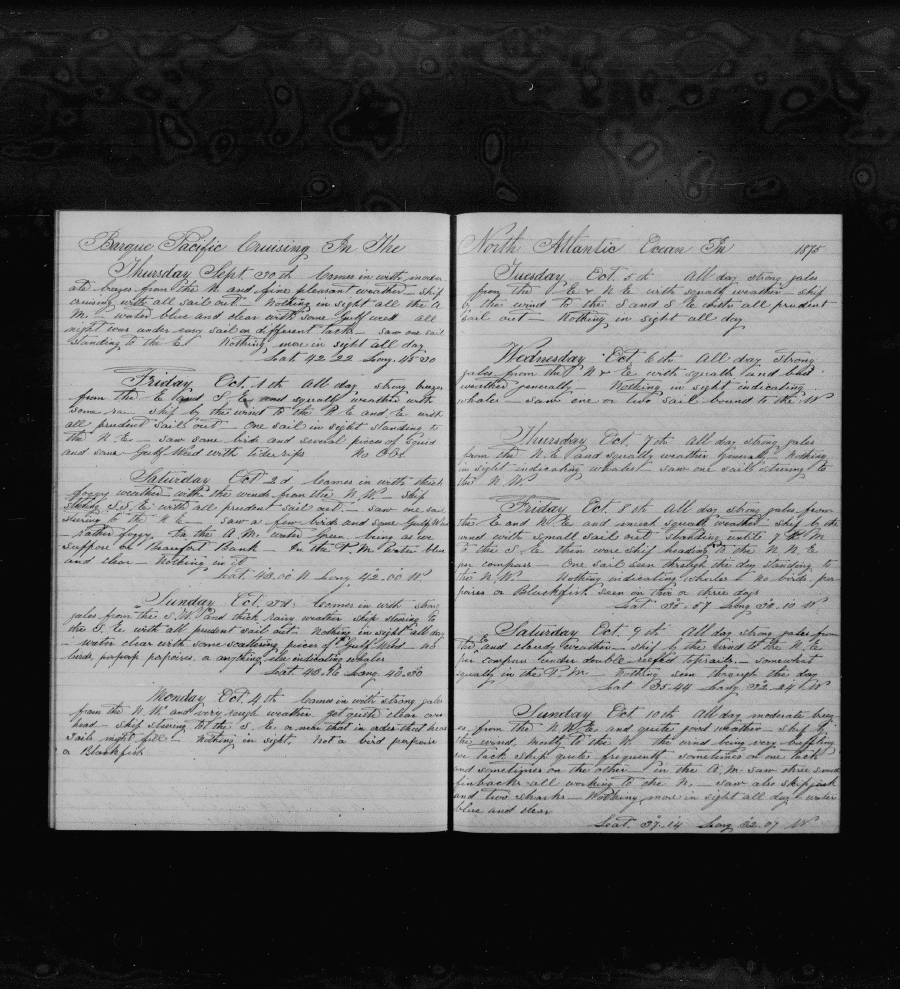 Barque Pacific Cruising In The
Thursday Sept 30th Comes in with moder
ate breezes from the N and fine pleasant weather ship
cruising with all sail out Nothing in sight all the A
M - water blue and clear with some Gulf weed all
night was under easy sail on different tacks - saw one sail
standing to the Et Nothing more in sight all day
Lat 42 22 Long. 45 30
Friday Oct. 1st All day strong breezes
from the E and S E and squally weather with
some rain ship by the wind to the and E with
all prudent sail out - One sail in sight standing to
the N E - saw some birds and several pieces of squid
and some Gulf Weed with tide rips No Obs
Saturday Oct 2d Comes in with thick
foggy weather with the winds from the N W ship
S.S.E with all prudent sail out - saw one sail
steering to the N E - saw a few birds and some Gulf Weed
- rather foggy. In the A M water green being as we
suppose on Beaufort Bank - In the P M water blue
and clear - Nothing in st
Lat. 43.00 N Long 42.00 W
Sunday Oct. 3d. Comes in with strong
gales from the S.W. and thick rainy weather ship steering to
the S. E. with all prudent sail out Nothing in sight all day
- water clear with some scattering pieces of Gulf Weed - no
birds, porpoises or anything else indicating whales
Lat. 40. Long 40.30
Monday Oct. 4th Comes in with strong gales
from the N W. and very rough weather got quite clear over
head - ship steering to the S. E. or near that in order that
sails might fill - Nothing in sight. Not a bird porpoise
or Blackfish
North Atlantic Ocean In 1875
Tuesday Oct. 5th All day strong gales
from the E & N E with squally weather ship
by the wind to the S and S E with all prudent
sail out - Nothing in sight all day
Wednesday Oct 6th All day strong
gales from the N & E with squalls and bad
weather generally - Nothing in sight indicating
whales - saw one or two sail bound to the W
Thursday Oct. 7th All day strong gales
from the N.E and squally weather generally - Nothing
in sight indicating whales saw one sail steering to
the N W
Friday Oct. 8th All day strong gales from
the E and N E and much squally weather - ship by the
wind with small sail out standing until 7 M
to the S E then wore ship heading to the N N E
per compass - One sail seen through the day standing to
the N.W. Nothing indicating whales & no birds por
poises or Blackfish seen on two or three days
Lat 35.57 Long 30.10 W
Saturday Oct. 9th All day strong gales from
the E and cloudy weather - ship by the wind to the N E
per compass under double reefed topsails. - somewhat
squally in the P.M. - Nothing seen through the day
Lat 35 44 Long 32.24 W
Sunday Oct. 10th All day moderate breez
es from the N W E and quite good weather - ship by
the wind, mostly to the N. the wind being very baffling
we tack ship quite frequent sometimes on one tack
and sometimes on the other - in the A.M. saw three small
finbacks all working to the N. - saw also skipjack
and two sharks - Nothing more in sight all day water
blue and clear
Lat. 37.14 Long 32.07 W